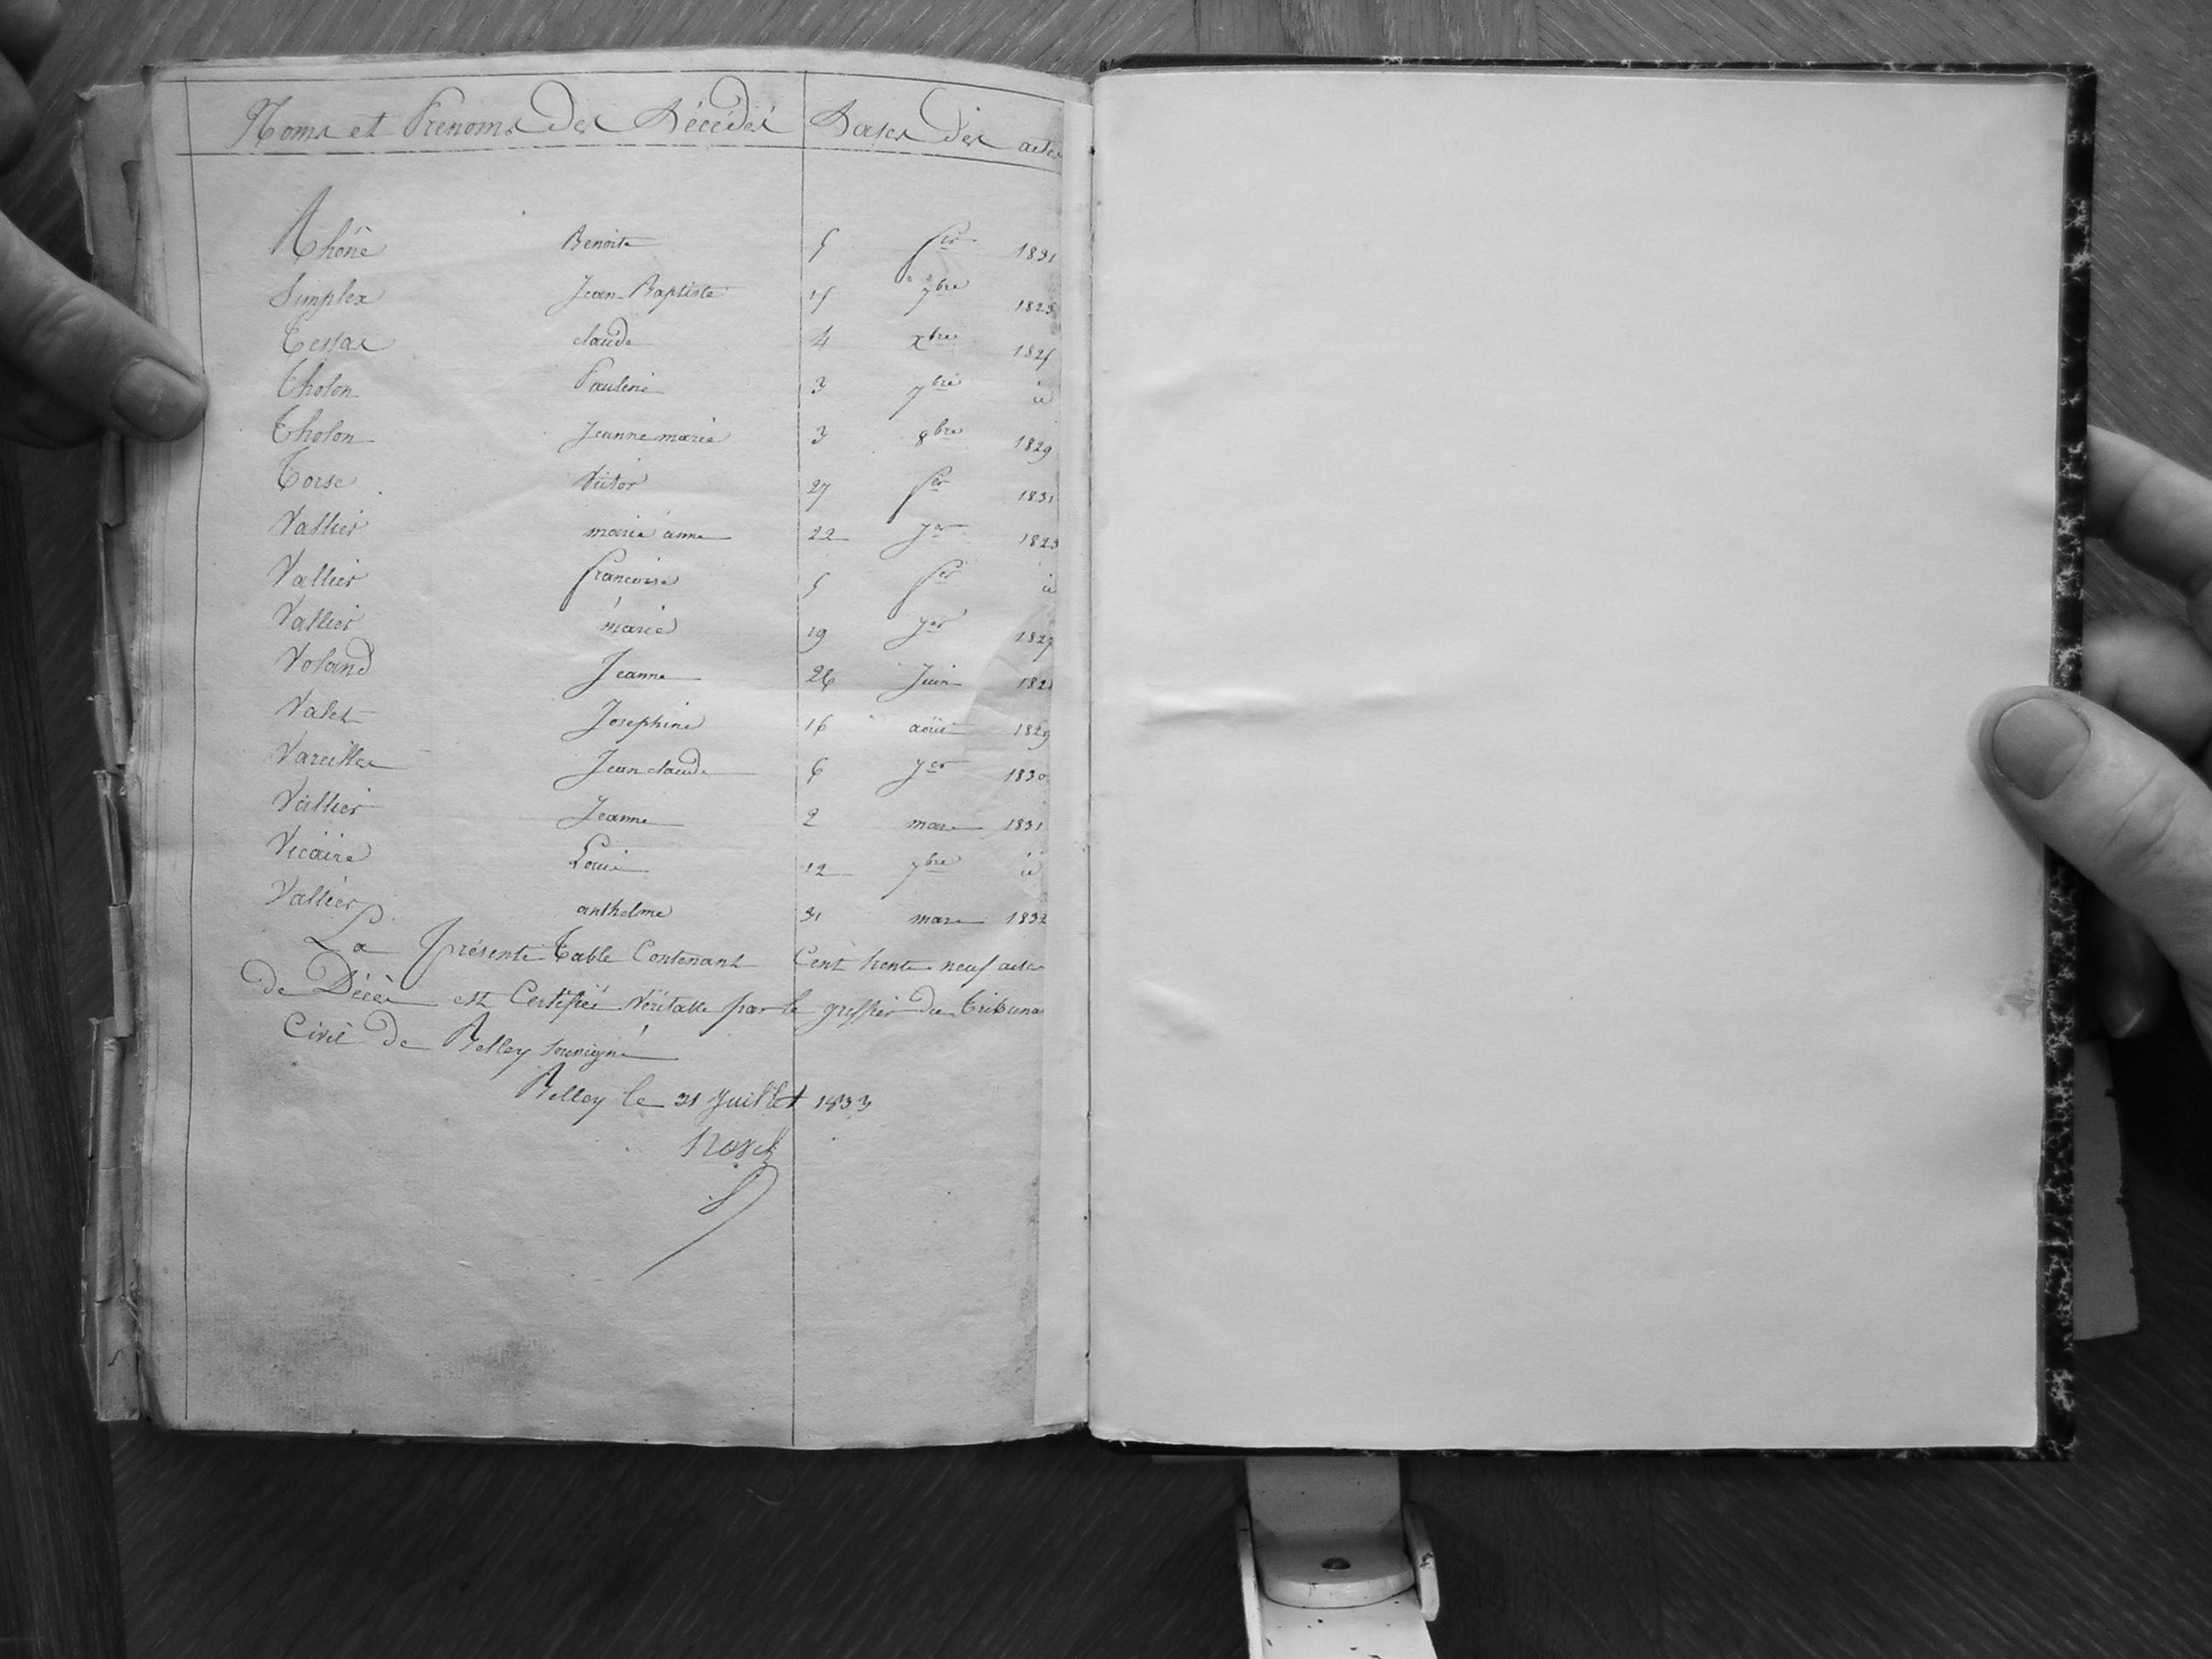 Noms et Prénoms des Décédés Dates des actes
Rhône Benoite 5 fer 1831
Simplex Jean-Baptiste 15 7bre 1823
Tessas claude 4 xbre 1825
Tholon Pauline 3 7bre id
Tholon Jeanne marie 3 8bre 1829
Torse Victor 27 fer 1831
Vallier marie anne 22 Jer 1823
Vallier françoise 5 fer id
Vallier marie 19 Jer 1827
Voland Jeanne 26 Juin 182
Valet Josephine 16 août 1829
Vareilles Jean claude 6 Jer 1830
Vallier Jeanne 2 mars 1831
Vicaire Louis 12 7bre id
Vallier anthelme 31 mars 1832
La Présente Table Contenant Cent trente neuf actes
de Décès est Certifiée Véritable par le greffier du Tribunal
Civil de Belley soussigné
Belley le 31 Juillet 1833